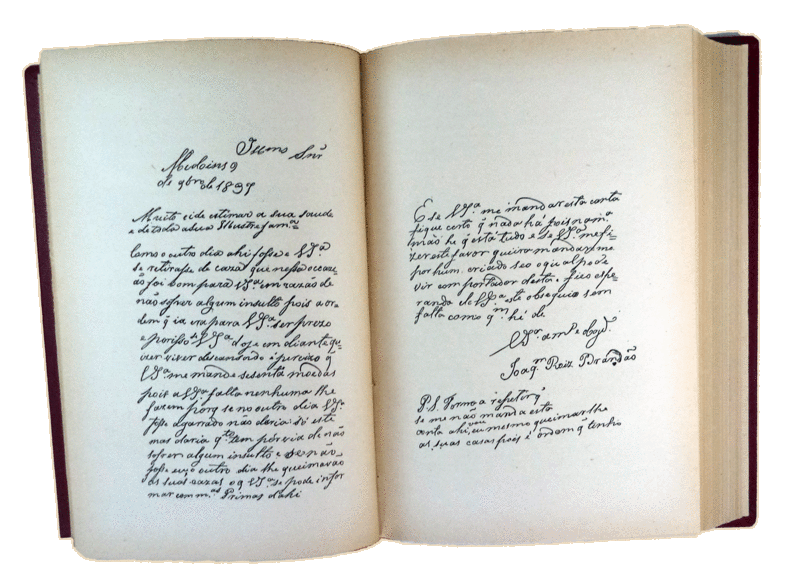 Illmo Snr
Medeiros 9
de 9bro de 1837
Muito eide estimar a sua saude
e de toda a sua Illustre fam.ª
Como o outro dia ahi fosse e VSª
se retirasse de caza que nessa occazi=
ão foi bom para VSª em razão de
não sofrer algum insulto pois a or=
dem q̃ ia era para VSª ser prezo
e porisso VSª hoje em diante qu=
er viver descansado é percizo q̃
VSª me mande sesenta moedas
pois a VSª falta nenhuma lhe
fazem porq̃ se no outro dia VSª
fosse agarrado não daria só esta
mas daria q.to tem por via de não
sofrer algum insulto e se não
fosse eu o outro dia lhe queimavão
as suas cazas o q̃ VSª se pode infor
mar com m.as Primas dahi
E se VSª me mandar esta conta
fique certo q̃ nada há pois na m.ª
mão he q̃ está tudo e se VSª me fi=
zer este favor queira mandarxme
por hum criado seo o qual pode
vir com portador desta. Fico espe=
rando de VSª este obsequio sem
falta como q.m hé de
VSª am.º e
Joaq.m Roiz Brandão
P.S. Torno a repetir q̃
se me não manda esta
conta ahi vou eu mesmo queimar lhe
as suas casas pois é ordem q̃ tenho